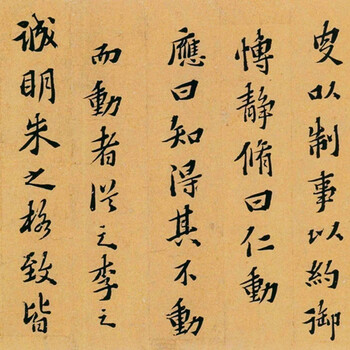 以制事以約御
愽靜脩曰仁動
應曰知得其不動
而動者從之李之
誠明朱之格致皆